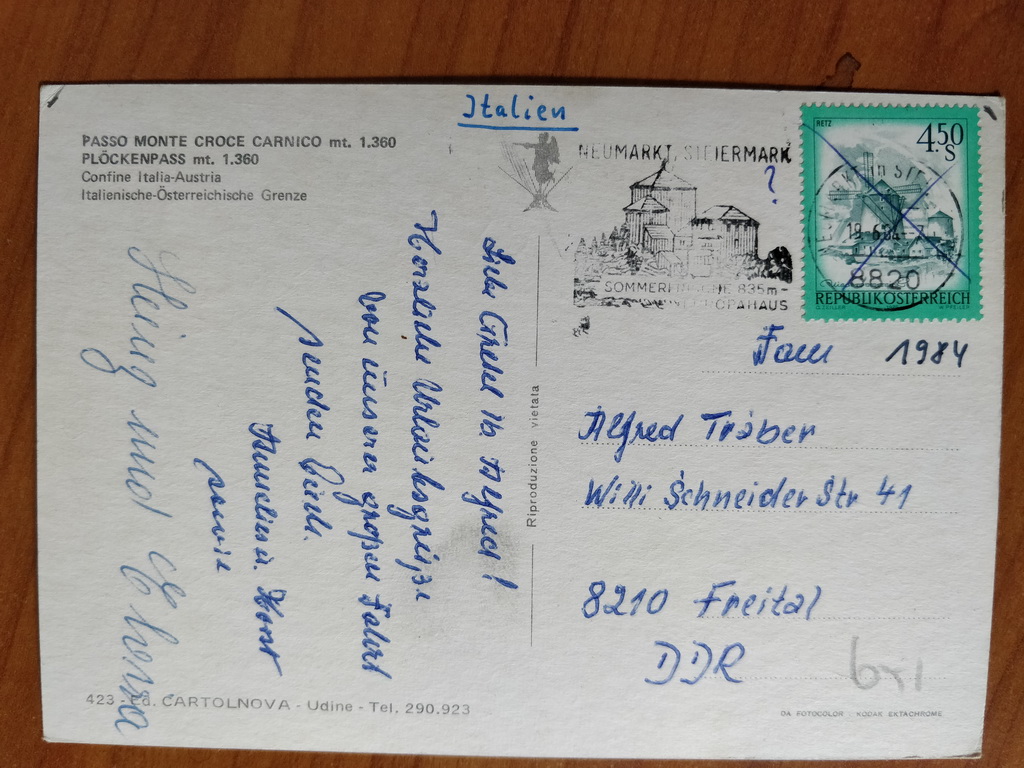 Italien
PASSO MONTE CROCE CARNICO mt. 1.360
PLÖCKENPASS mt. 1.360
Confine Italia-Austria
Italienische-Österreichische Grenze
NEUMARKT, STEIERMARK
?
SOMMERFRISCHE 835m-
EUROPAHAUS
RETZ
4.50
S
8820
REPUBLIK ÖSTERREICH
Liebe Gretel u. Alfred!
Herzliche Urlaubsgrüße
von unserer großen Fahrt
senden Euch
Annelies u. Horst
sowie
Heinz und
Riproduzione vietata
Fam 1984
Alfred Träber
Willi Schneider Str 41
8210 Freital
DDR
423 - Ed. CARTOLNOVA - Udine - Tel. 290.923
DA FOTOCOLOR KODAK EKTACHROME